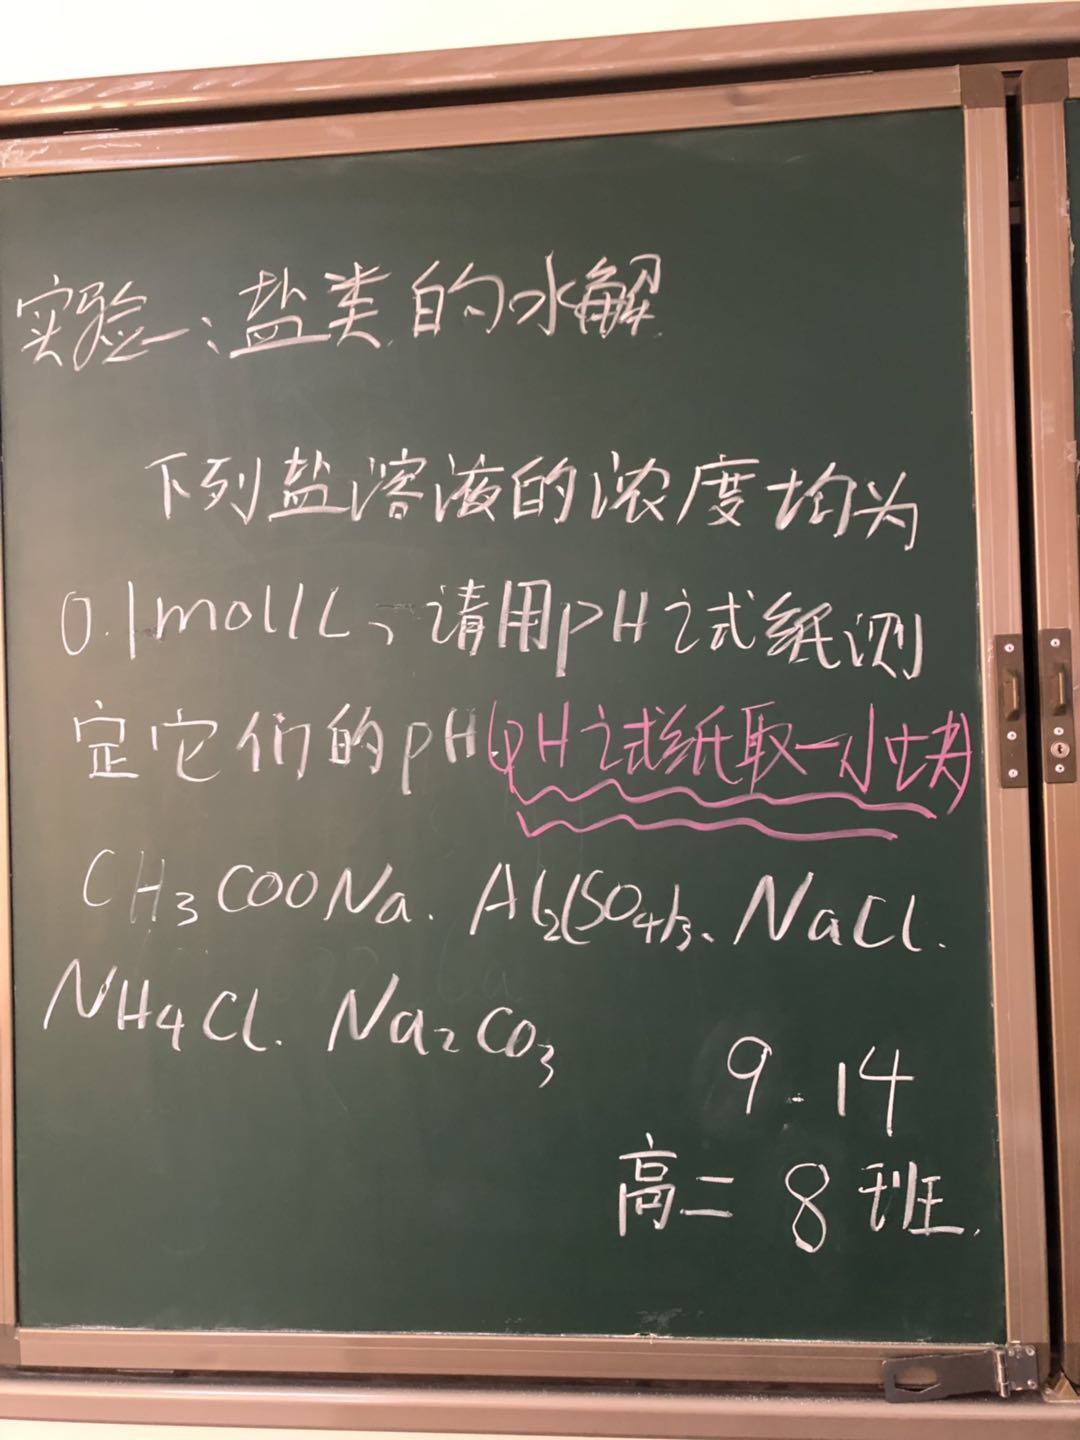 实验一:盐类的水解
下列盐溶液的浓度均为
0.1mol/L,请用pH试纸测
定它们的pH(pH试纸取一小块)
CH₃COONa. Al₂(SO₄)₃、NaCl.
NH₄Cl. Na₂CO₃
9.14
高二8班.